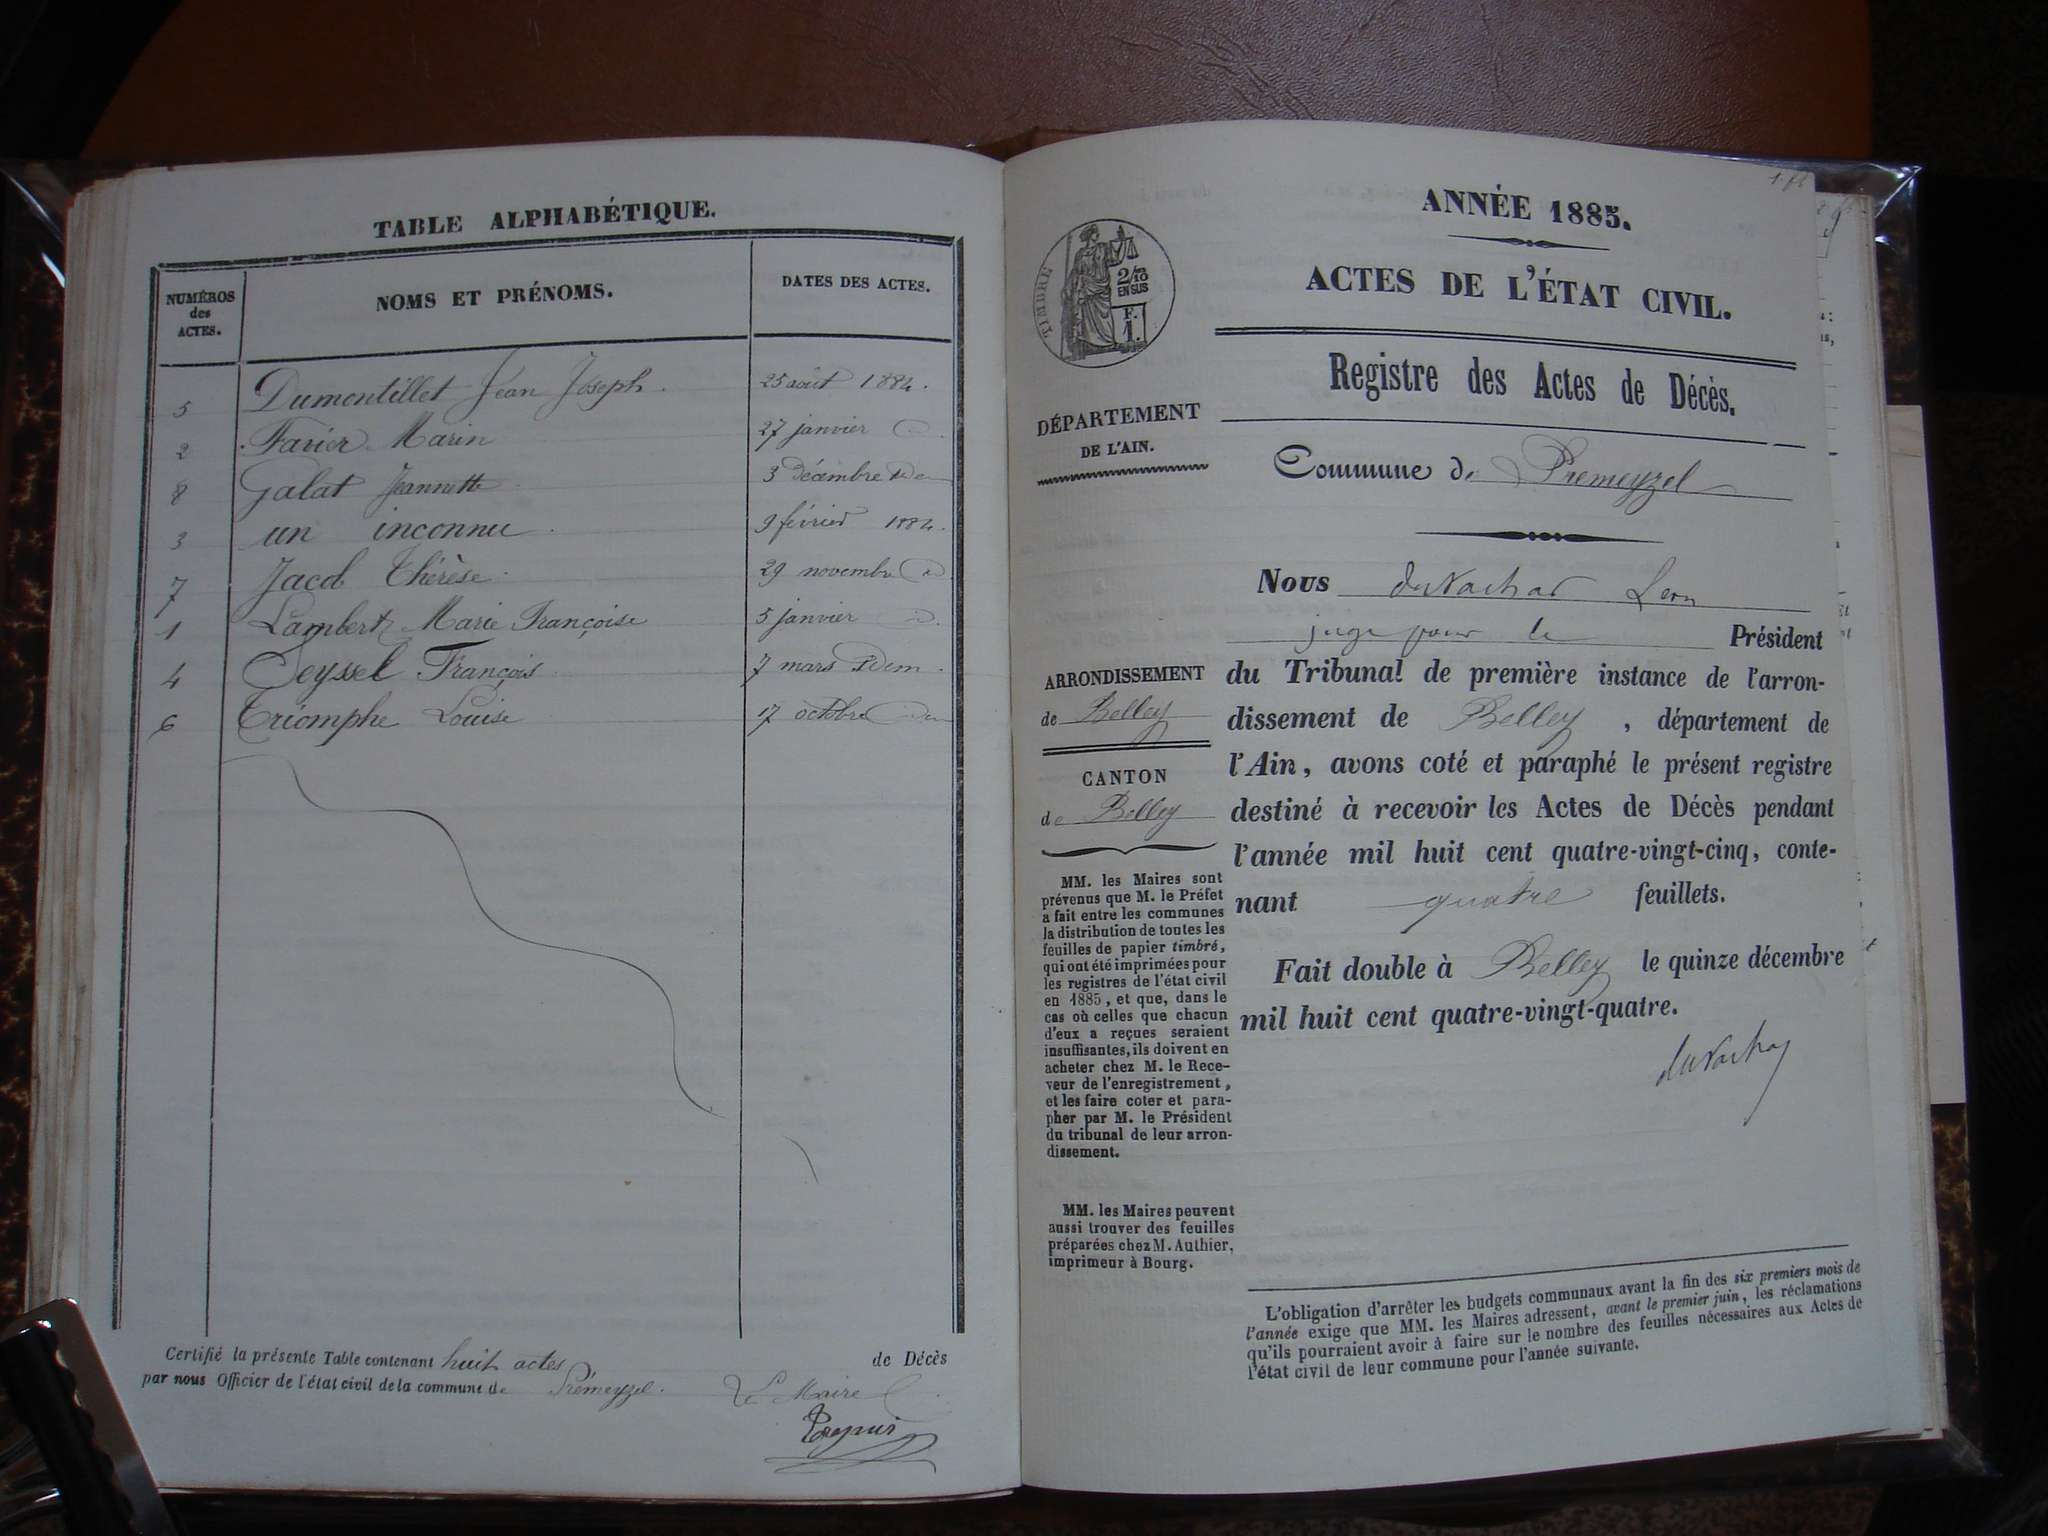 TABLE ALPHABÉTIQUE.
NUMÉROS des ACTES.
NOMS ET PRÉNOMS.
DATES DES ACTES.
5 Dumentillet Jean Joseph. 25 août 1884.
2 Favier Marin 27 janvier d°
8 Galat Jeannette 3 Décembre idem
3 un inconnu 9 février 1884.
7 Jacob Thérèse 29 novembre d°
1 Lambert Marie Françoise 5 janvier d°
4 Seyssel François 7 mars idem
6 Triomphe Louise 17 octobre idem
Certifié la présente Table contenant huit actes de Décès
par nous Officier de l'état civil de la commune de Prémeyzel. Le Maire
ANNÉE 1885.
ACTES DE L'ÉTAT CIVIL.
TIMBRE
2/10
EN SUS
F.
1.
Registre des Actes de Décès.
DÉPARTEMENT
DE L'AIN.
Commune de Prémeyzel
Nous Léon
juge pour le Président
du Tribunal de première instance de l'arron-
dissement de Belley, département de
l'Ain, avons coté et paraphé le présent registre
destiné à recevoir les Actes de Décès pendant
l'année mil huit cent quatre-vingt-cinq, conte-
nant quatre feuillets.
Fait double à Belley le quinze décembre
mil huit cent quatre-vingt-quatre.
ARRONDISSEMENT
de Belley
CANTON
de Belley
MM. les Maires sont
prévenus que M. le Préfet
a fait entre les communes
la distribution de toutes les
feuilles de papier timbré,
qui ont été imprimées pour
les registres de l'état civil
en 1885, et que, dans le
cas où celles que chacun
d'eux a reçues seraient
insuffisantes, ils doivent en
acheter chez M. le Rece-
veur de l'enregistrement,
et les faire coter et para-
pher par M. le Président
du tribunal de leur arron-
dissement.
MM. les Maires peuvent
aussi trouver des feuilles
préparées chez M. Authier,
imprimeur à Bourg.
L'obligation d'arrêter les budgets communaux avant la fin des six premiers mois de
l'année exige que MM. les Maires adressent, avant le premier juin, les réclamations
qu'ils pourraient avoir à faire sur le nombre des feuilles nécessaires aux Actes de
l'état civil de leur commune pour l'année suivante.